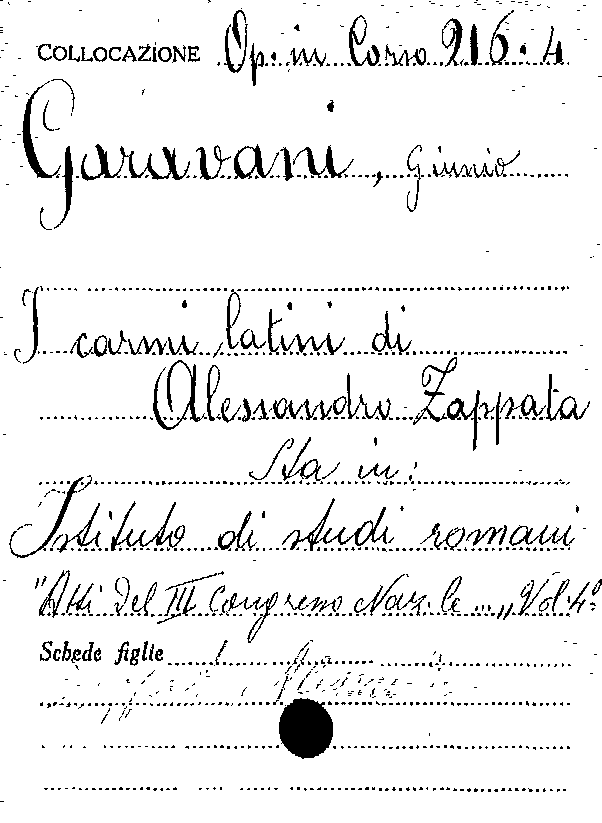 COLLOCAZIONE Op. in Corso 216.4
Garavani, Giunio
I carmi latini di
Alessandro Zappata
Sta in:
Istituto di studi romani
"Atti del III Congresso Naz.le ...„ Vol. 4º
Schede figlie 1